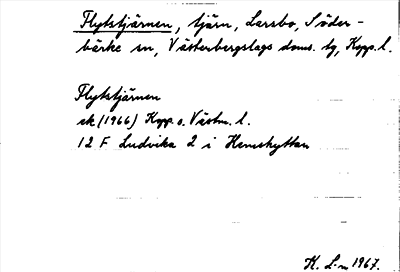 Flytstjärnen, tjärn, Larsbo, Söder-
bärke sn, Västerbergslags doms. tg, Kopp. l.
Flytstjärnen
ek (1966) Kopp. o. Västm. l.
12 F Ludvika 2 i Hemshyttan
K. L-m 1967.